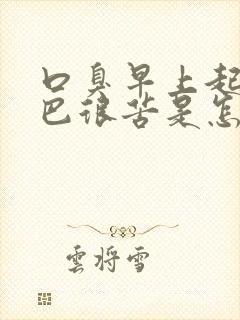 口臭早上起
巴很苦是怎
雲将雪